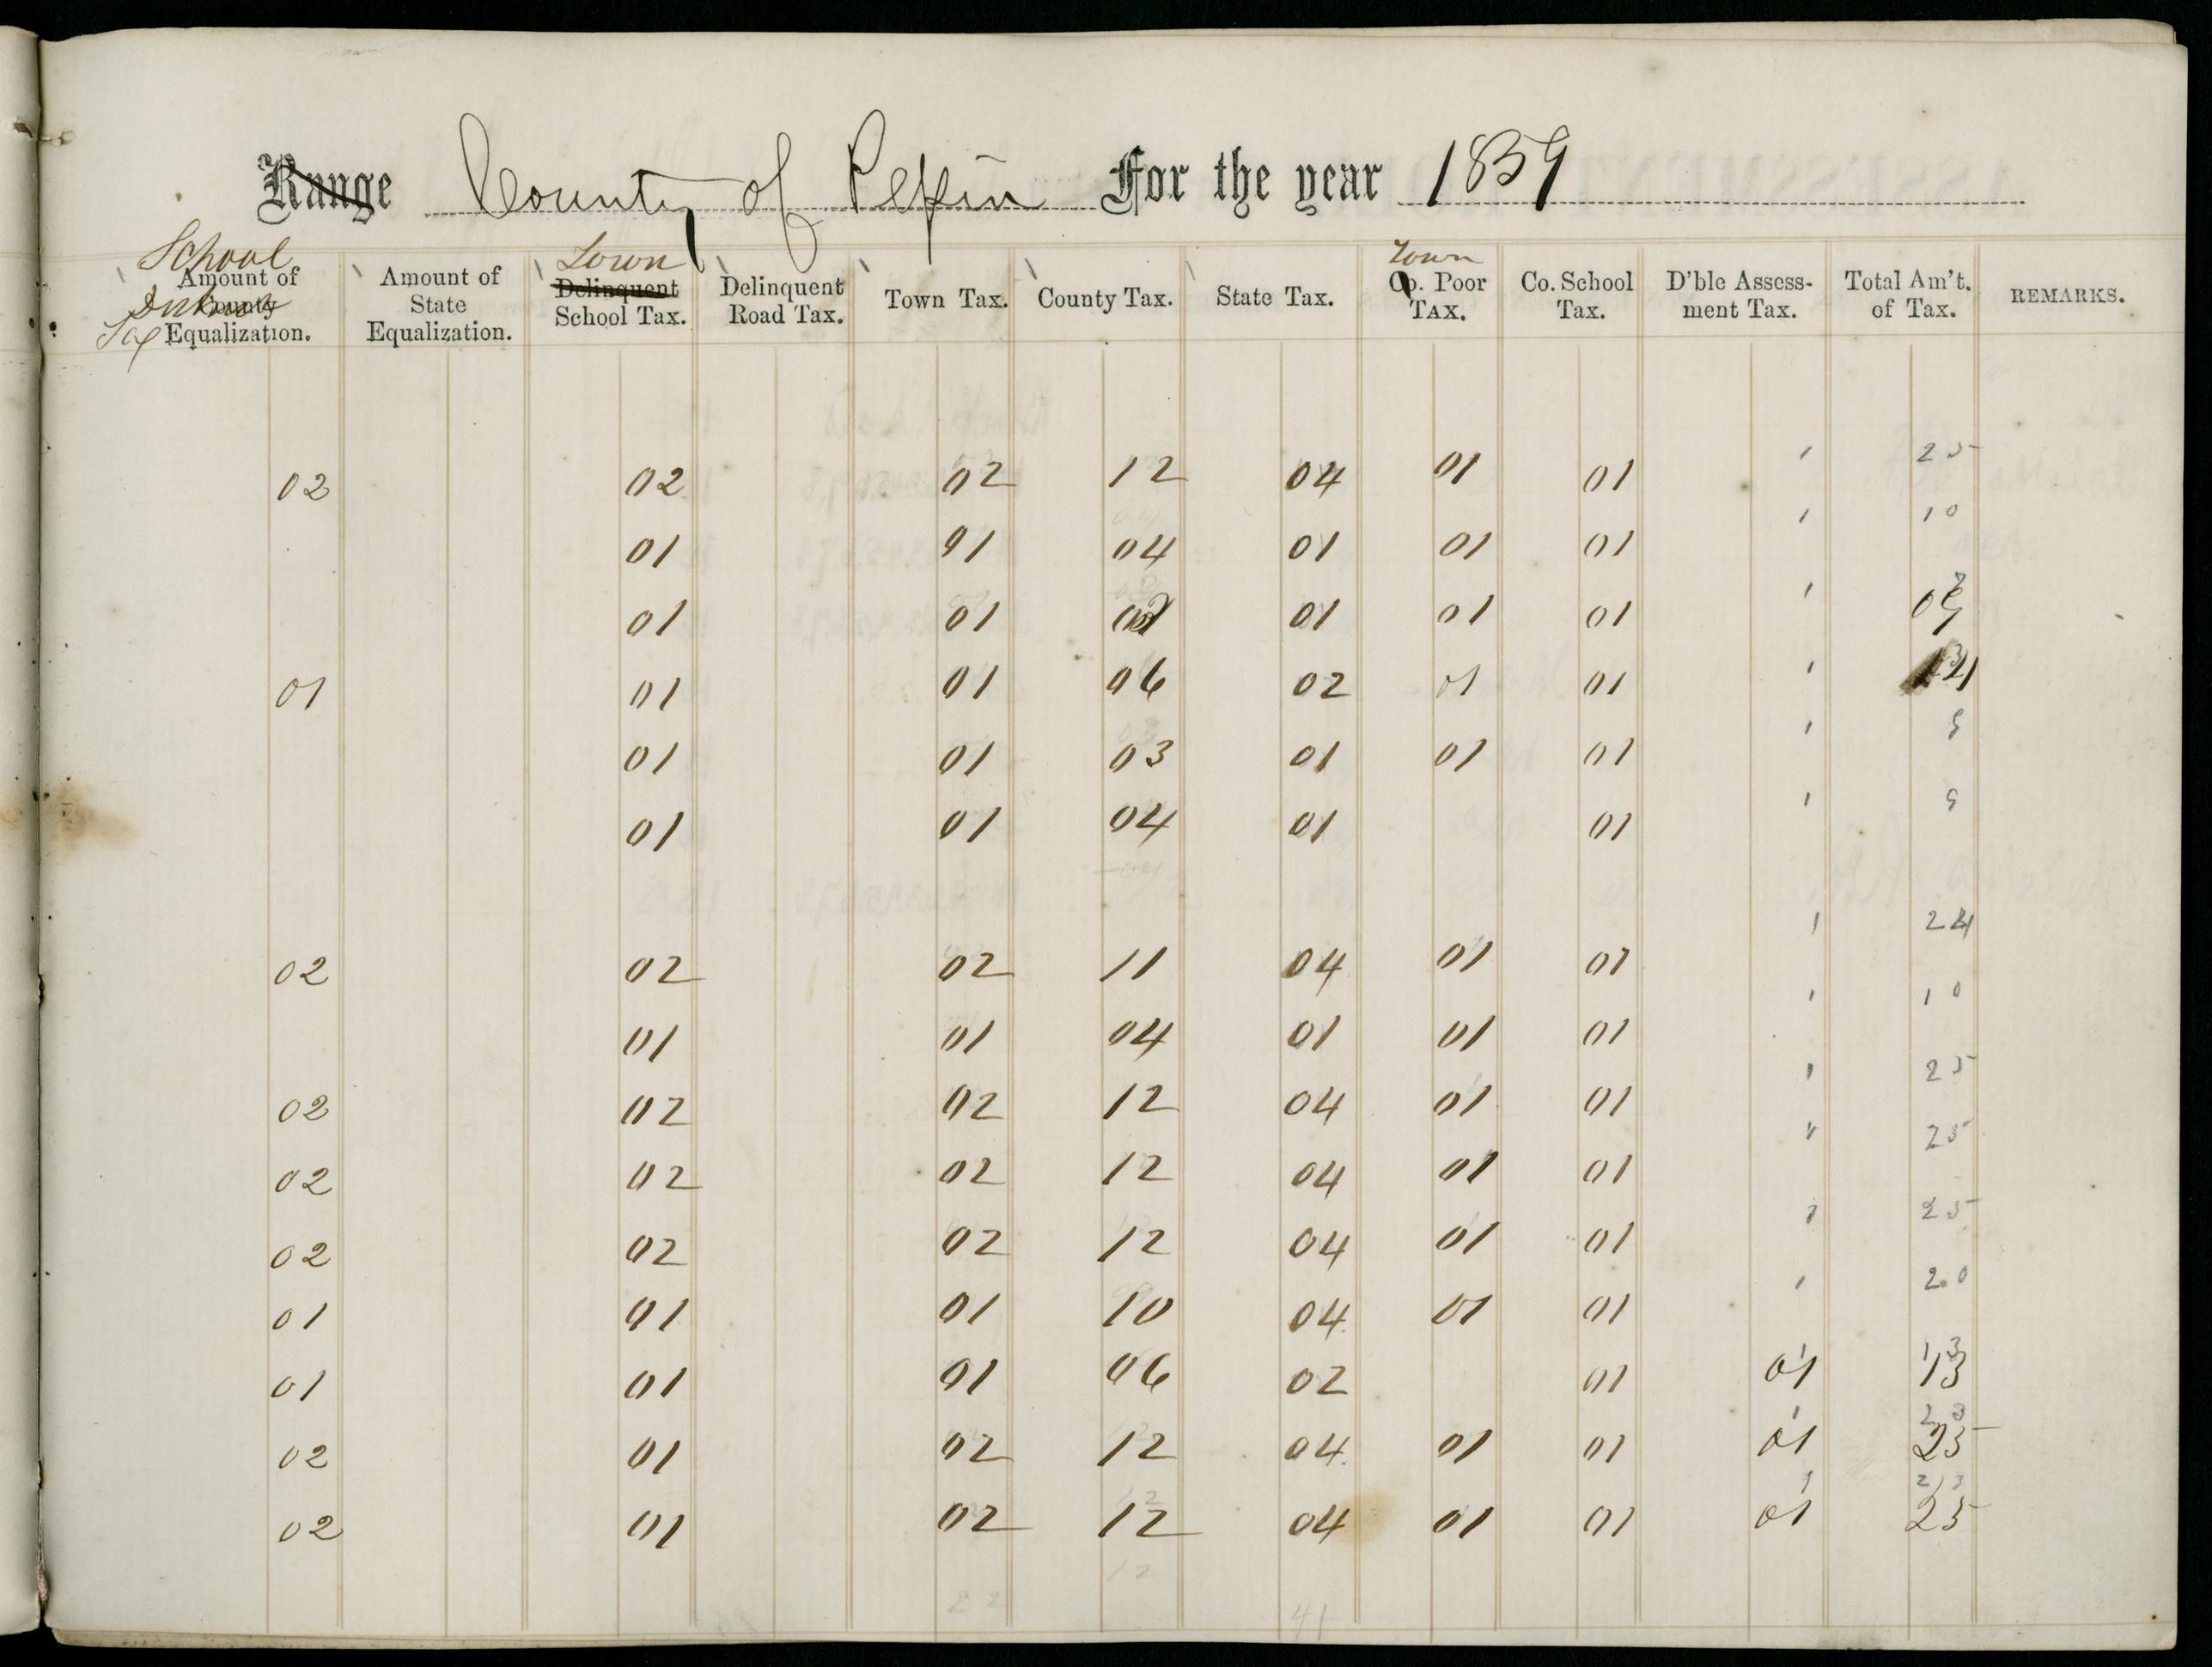 Range County of Pepin For the year 1859
School Town Town
Amount of County Equalization. Amount of State Equalization. Delinquent School Tax. Delinquent Road Tax. Town Tax. County Tax. State Tax. Co. Poor Tax. Co. School Tax. D'ble Assessment Tax. Total Am't. of Tax. REMARKS.
Tax
02 02 02 12 04 01 01 1 25
01 01 04 01 01 01 1 10
01 01 01 01 01 1
01 01 01 06 02 01 01 1
01 01 03 01 01 01 1 9
01 01 04 01 01 1 9
02 02 02 11 04 01 01 1 24
01 01 04 01 01 01 1 10
02 02 02 12 04 01 01 1 25
02 02 02 12 04 01 01 1 25
02 02 02 12 04 01 01 1 25
01 01 01 10 04 01 01 1 20
01 01 01 06 02 01 01 13
02 01 02 12 04 01 01 01 25
02 01 02 12 04 01 01 01 25